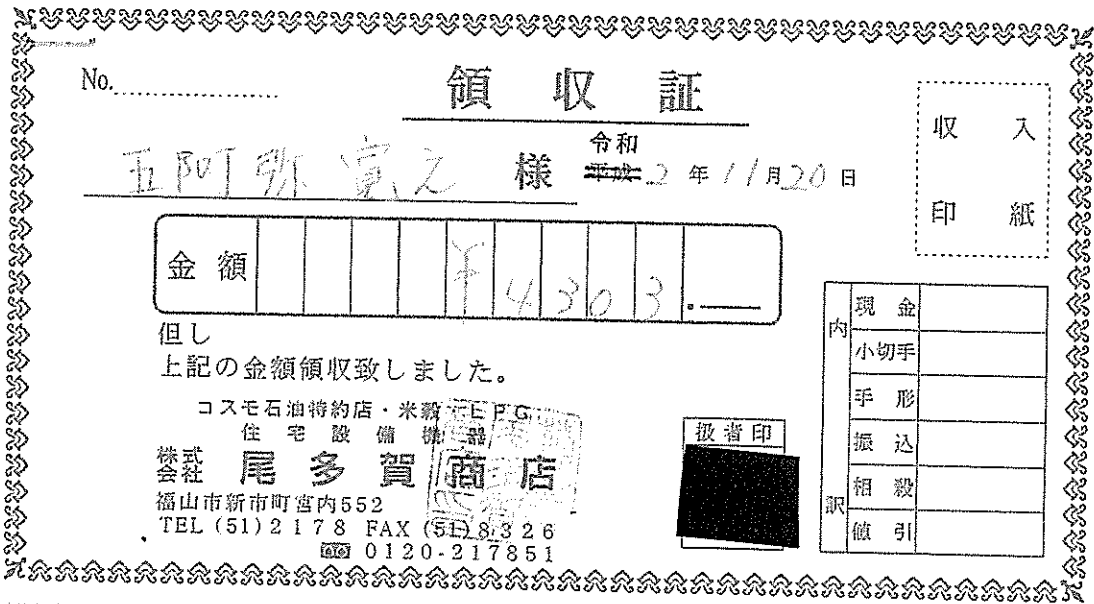 No.
領収証
五阿弥 寛之 様
令和
平成 2 年 11 月 20 日
収入
印紙
金額 ¥4303.—
但し
上記の金額領収致しました。
コスモ石油特約店・米穀・LPG
住宅設備機器
株式会社 尾多賀商店
福山市新市町宮内552
TEL (51)2178 FAX (51)8326
0120-217851
扱者印
内訳
現金
小切手
手形
振込
相殺
値引